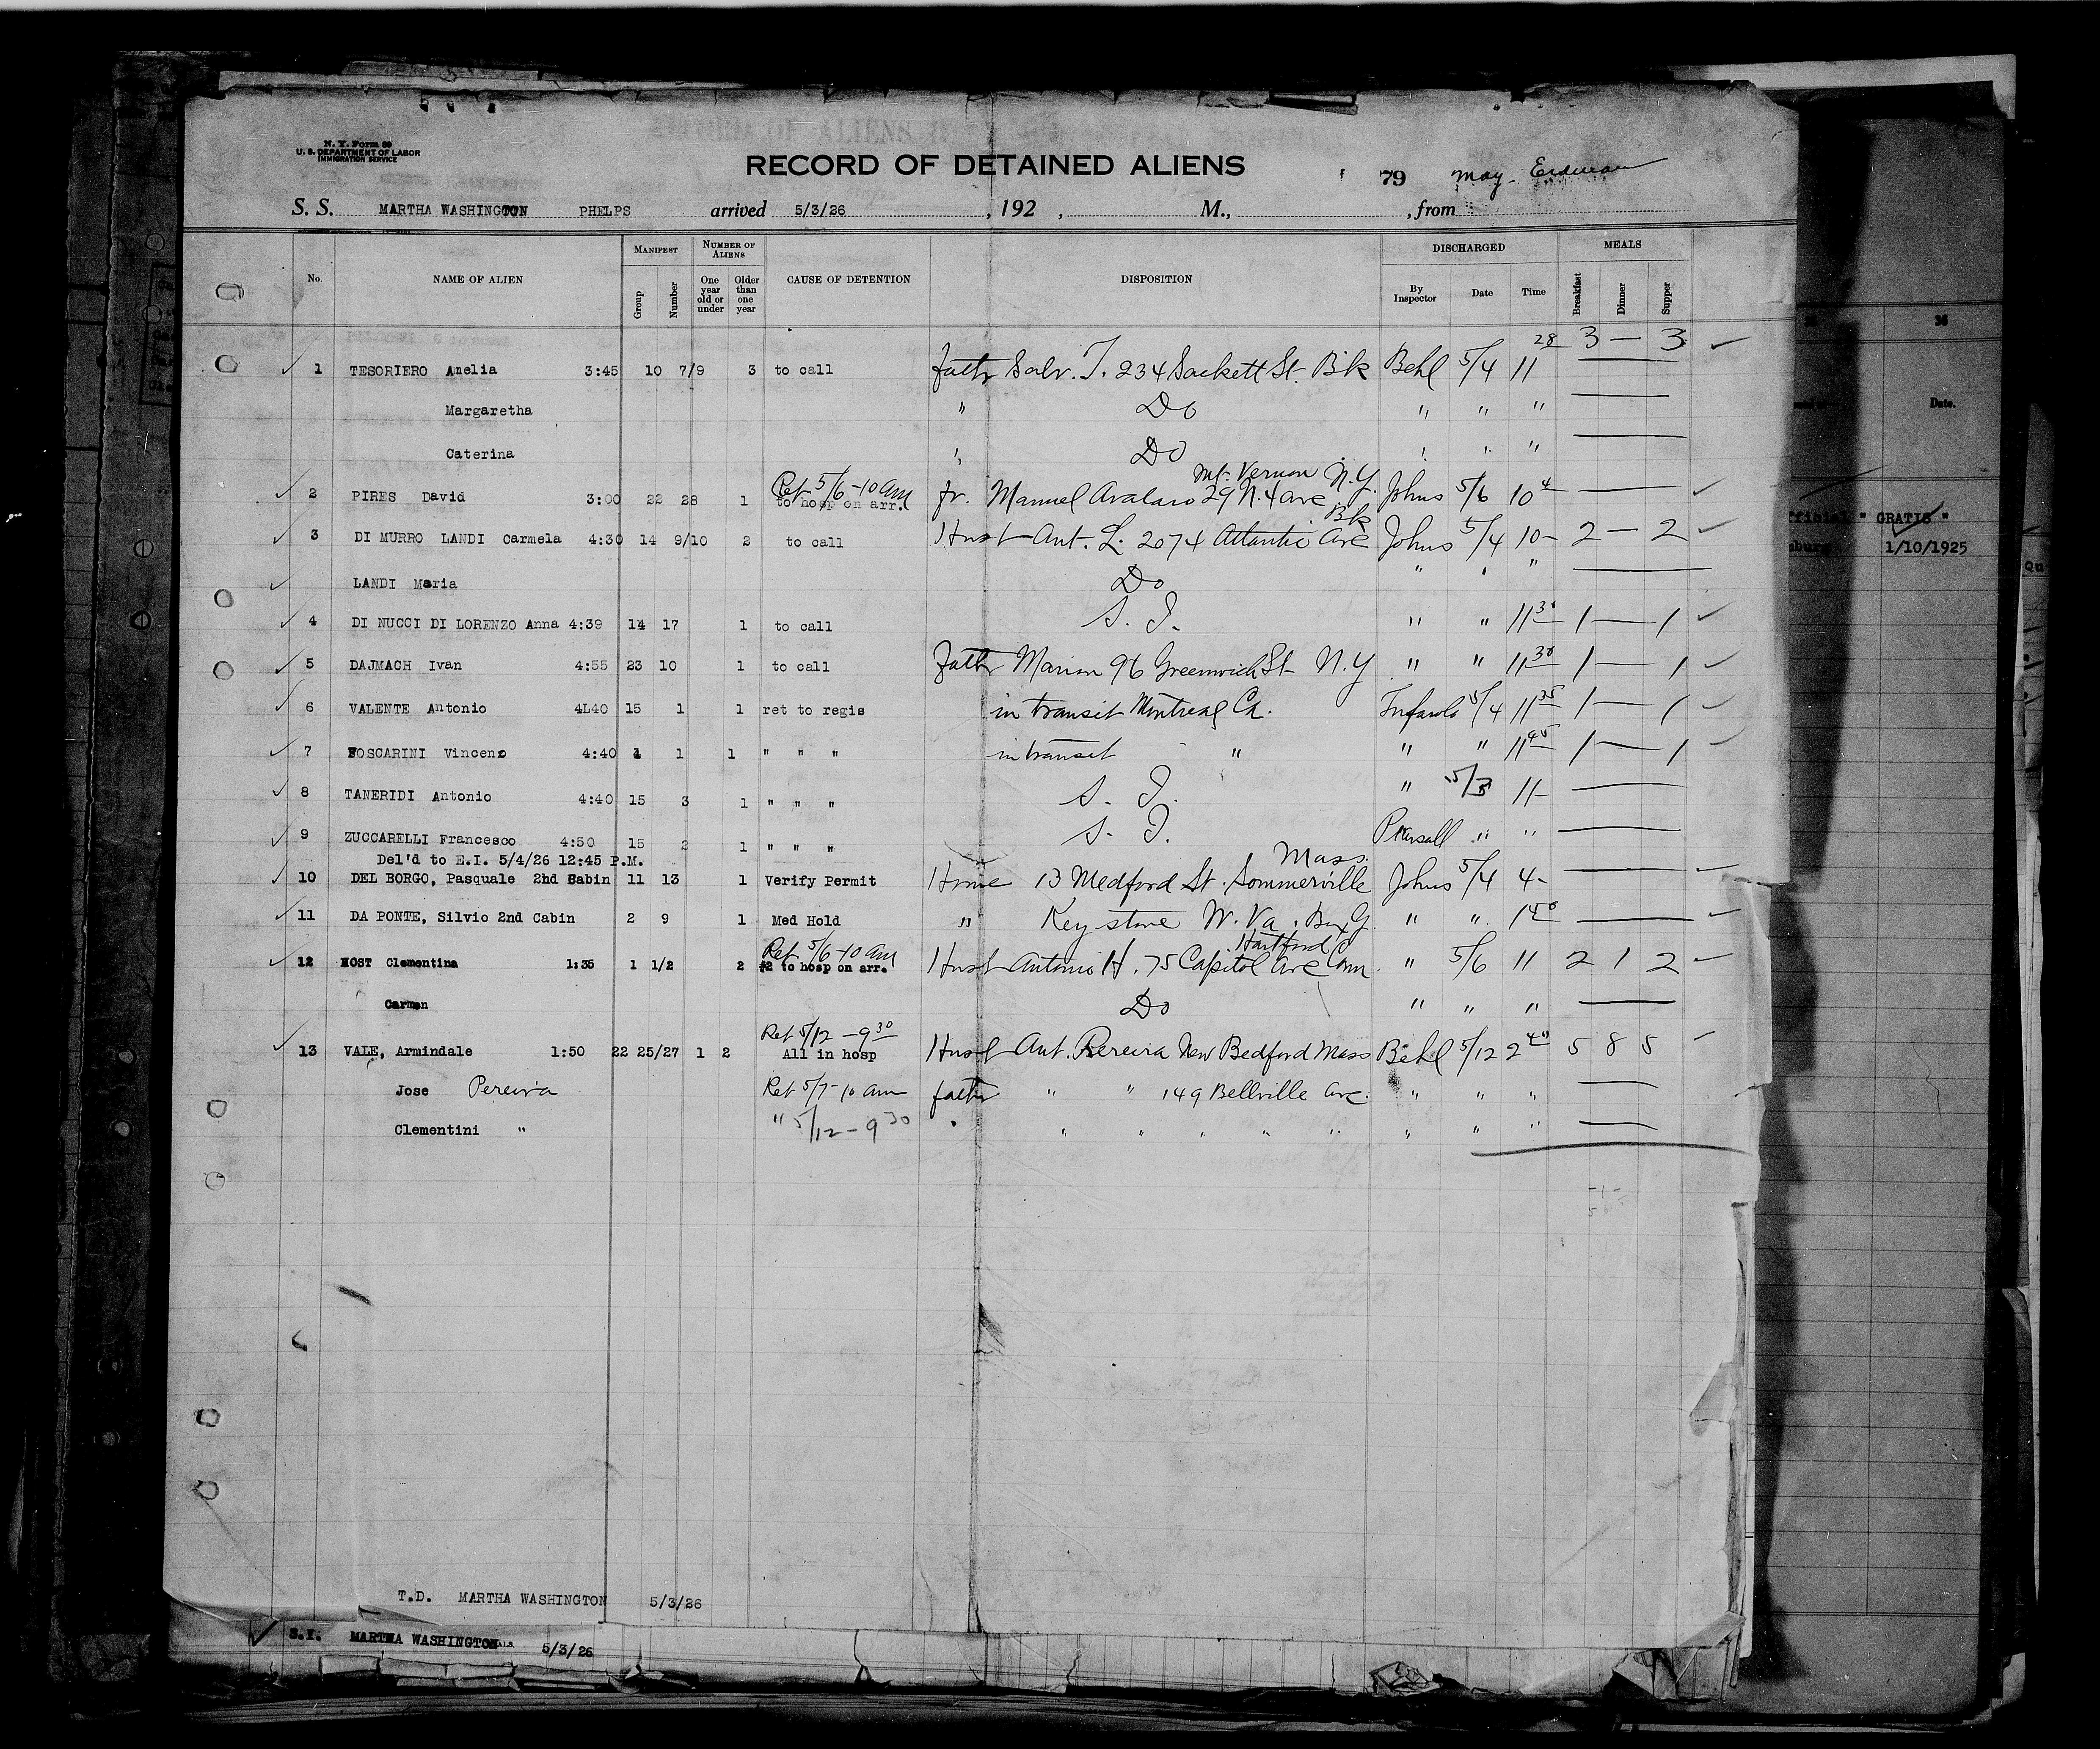 N. Y. Form 89
U. S. DEPARTMENT OF LABOR
IMMIGRATION SERVICE
RECORD OF DETAINED ALIENS
79 May
S. S. MARTHA WASHINGTON PHELPS arrived 5/3/26 , 192 , M., , from
No. NAME OF ALIEN MANIFEST Group Number NUMBER OF ALIENS One year old or under Older than one year CAUSE OF DETENTION DISPOSITION DISCHARGED By Inspector Date Time MEALS Breakfast Dinner Supper
28 3 — 3
1 TESORIERO Amelia 3:45 10 7/9 3 to call fathr Salv. T. 234 Sackett St. Bk Behl 5/4 11
Margaretha " Do " " "
Caterina " Do " " "
Ret 5/6 - 10 am Mt. Vernon N.Y.
2 PIRES David 3:00 22 28 1 to hosp on arr. fr. Manuel 29 N. 4 ave Johns 5/6 10
Bk
3 DI MURRO LANDI Carmela 4:30 14 9/10 2 to call Husb Ant. L. 2074 Atlantic Ave Johns 5/4 10- 2 — 2
LANDI Maria Do " " "
4 DI NUCCI DI LORENZO Anna 4:39 14 17 1 to call S. I. " " 11 30 1 — 1
5 DAJMACH Ivan 4:55 23 10 1 to call Fathr Marion 96 Greenwich St N.Y " " 11 30 1 — 1
6 VALENTE Antonio 4L40 15 1 1 ret to regis in transit Montreal Ca. 5/4 11 35 1 — 1
7 FOSCARINI Vincenz 4:40 1 1 1 " " " in transit " " " 11 45 1 — 1
8 TANERIDI Antonio 4:40 15 3 1 " " " S. I. " 5/3 11-
9 ZUCCARELLI Francesco 4:50 15 2 1 " " " S. I. Pearsall " "
Del'd to E.I. 5/4/26 12:45 P.M. Mass.
10 DEL BORGO, Pasquale 2nd Cabin 11 13 1 Verify Permit Home 13 Medford St. Sommerville Johns 5/4 4-
11 DA PONTE, Silvio 2nd Cabin 2 9 1 Med Hold " Keystone W. Va. " "
Ret 5/6 - 10 am Hartford
12 HOST Clementina 1:35 1 1/2 2 #2 to hosp on arr. Husb Antonio H. 75 Capitol Ave Conn. " 5/6 11 2 1 2
Carmen Do " " "
Ret 5/12 - 9 30
13 VALE, Armindale 1:50 22 25/27 1 2 All in hosp Husb Ant. Pereira New Bedford Mass Behl 5/12 2 40 5 8 5
Jose Pereira Ret 5/7 - 10 am fathr " " 149 Bellville Ave. " " "
Clementini " " 5/12 - 9 30 " " " " " " " "
T.D. MARTHA WASHINGTON 5/3/26
S.Y. MARTHA WASHINGTON 5/3/26
36
Date.
" GRATIS "
1/10/1925
Qu